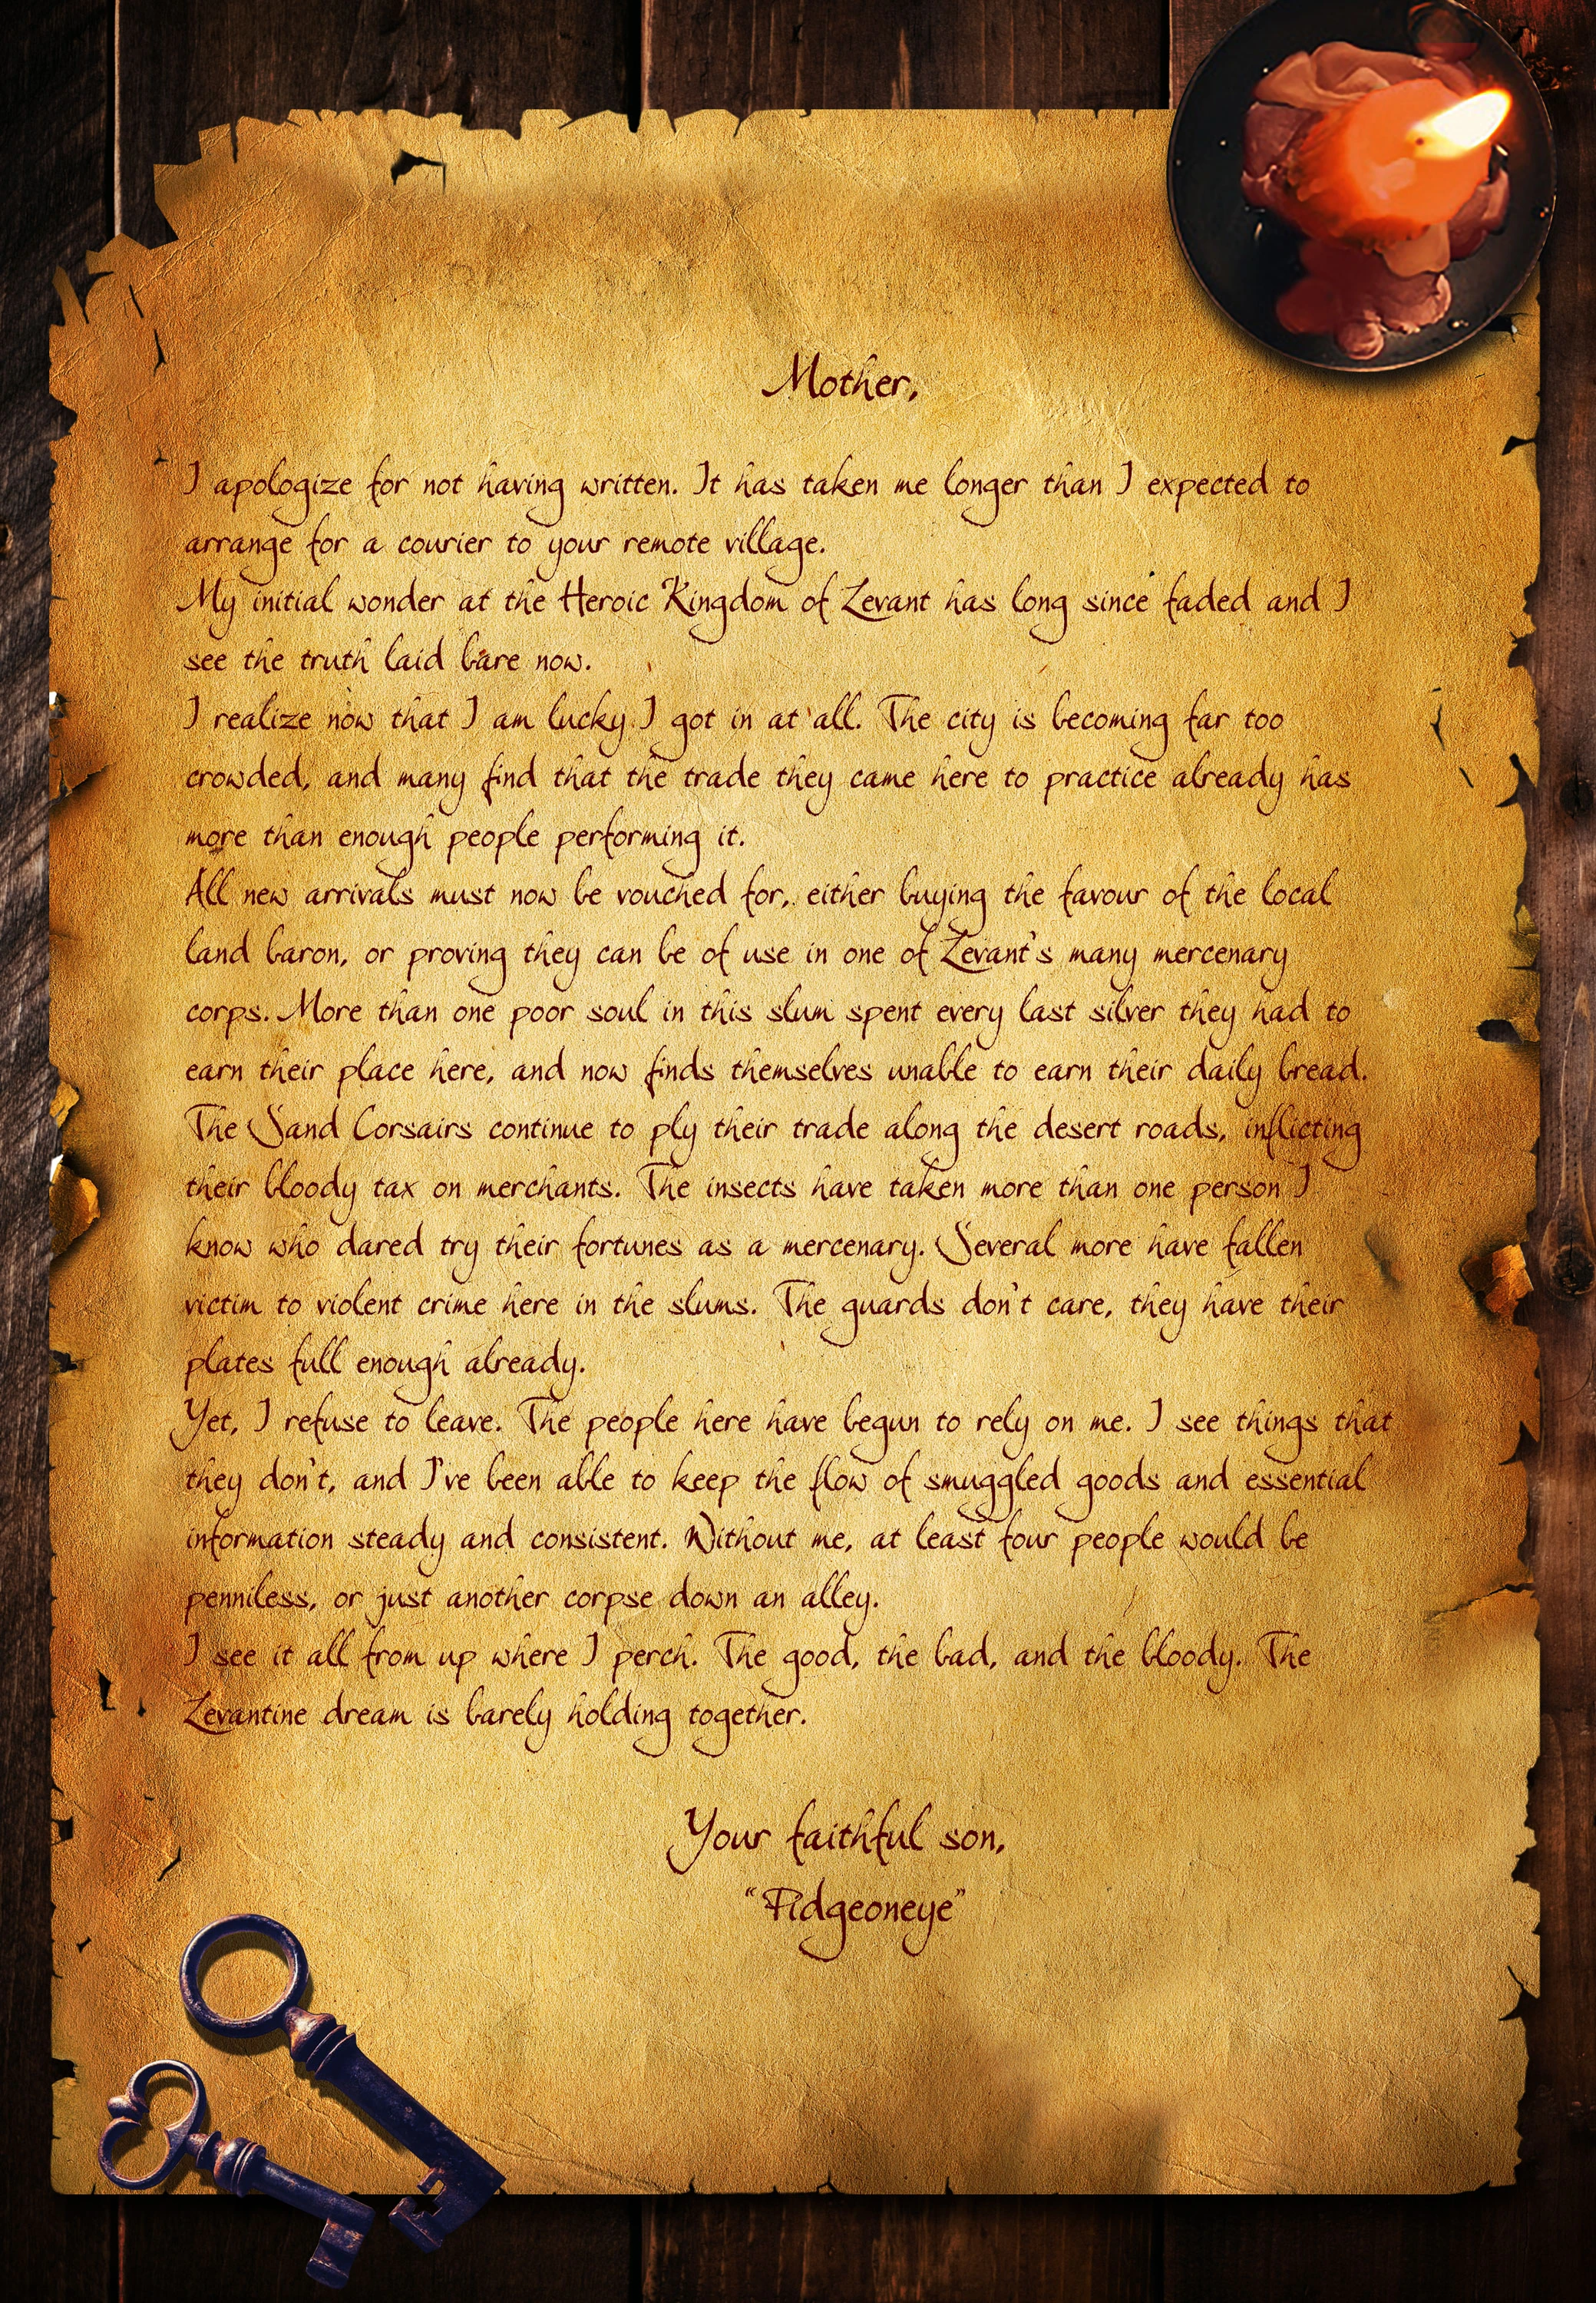 Mother,
I apologize for not having written. It has taken me longer than I expected to
arrange for a courier to your remote village.
My initial wonder at the Heroic Kingdom of Levant has long since faded and I
see the truth laid bare now.
I realize now that I am lucky I got in at all. The city is becoming far too
crowded, and many find that the trade they came here to practice already has
more than enough people performing it.
All new arrivals must now be vouched for, either buying the favour of the local
land baron, or proving they can be of use in one of Levant's many mercenary
corps. More than one poor soul in this slum spent every last silver they had to
earn their place here, and now finds themselves unable to earn their daily bread.
The Sand Corsairs continue to ply their trade along the desert roads, inflicting
their bloody tax on merchants. The insects have taken more than one person I
know who dared try their fortunes as a mercenary. Several more have fallen
victim to violent crime here in the slums. The guards don't care, they have their
plates full enough already.
Yet, I refuse to leave. The people here have begun to rely on me. I see things that
they don't, and I've been able to keep the flow of smuggled goods and essential
information steady and consistent. Without me, at least four people would be
penniless, or just another corpse down an alley.
I see it all from up where I perch. The good, the bad, and the bloody. The
Levantine dream is barely holding together.
Your faithful son,
"Pidgeoneye"